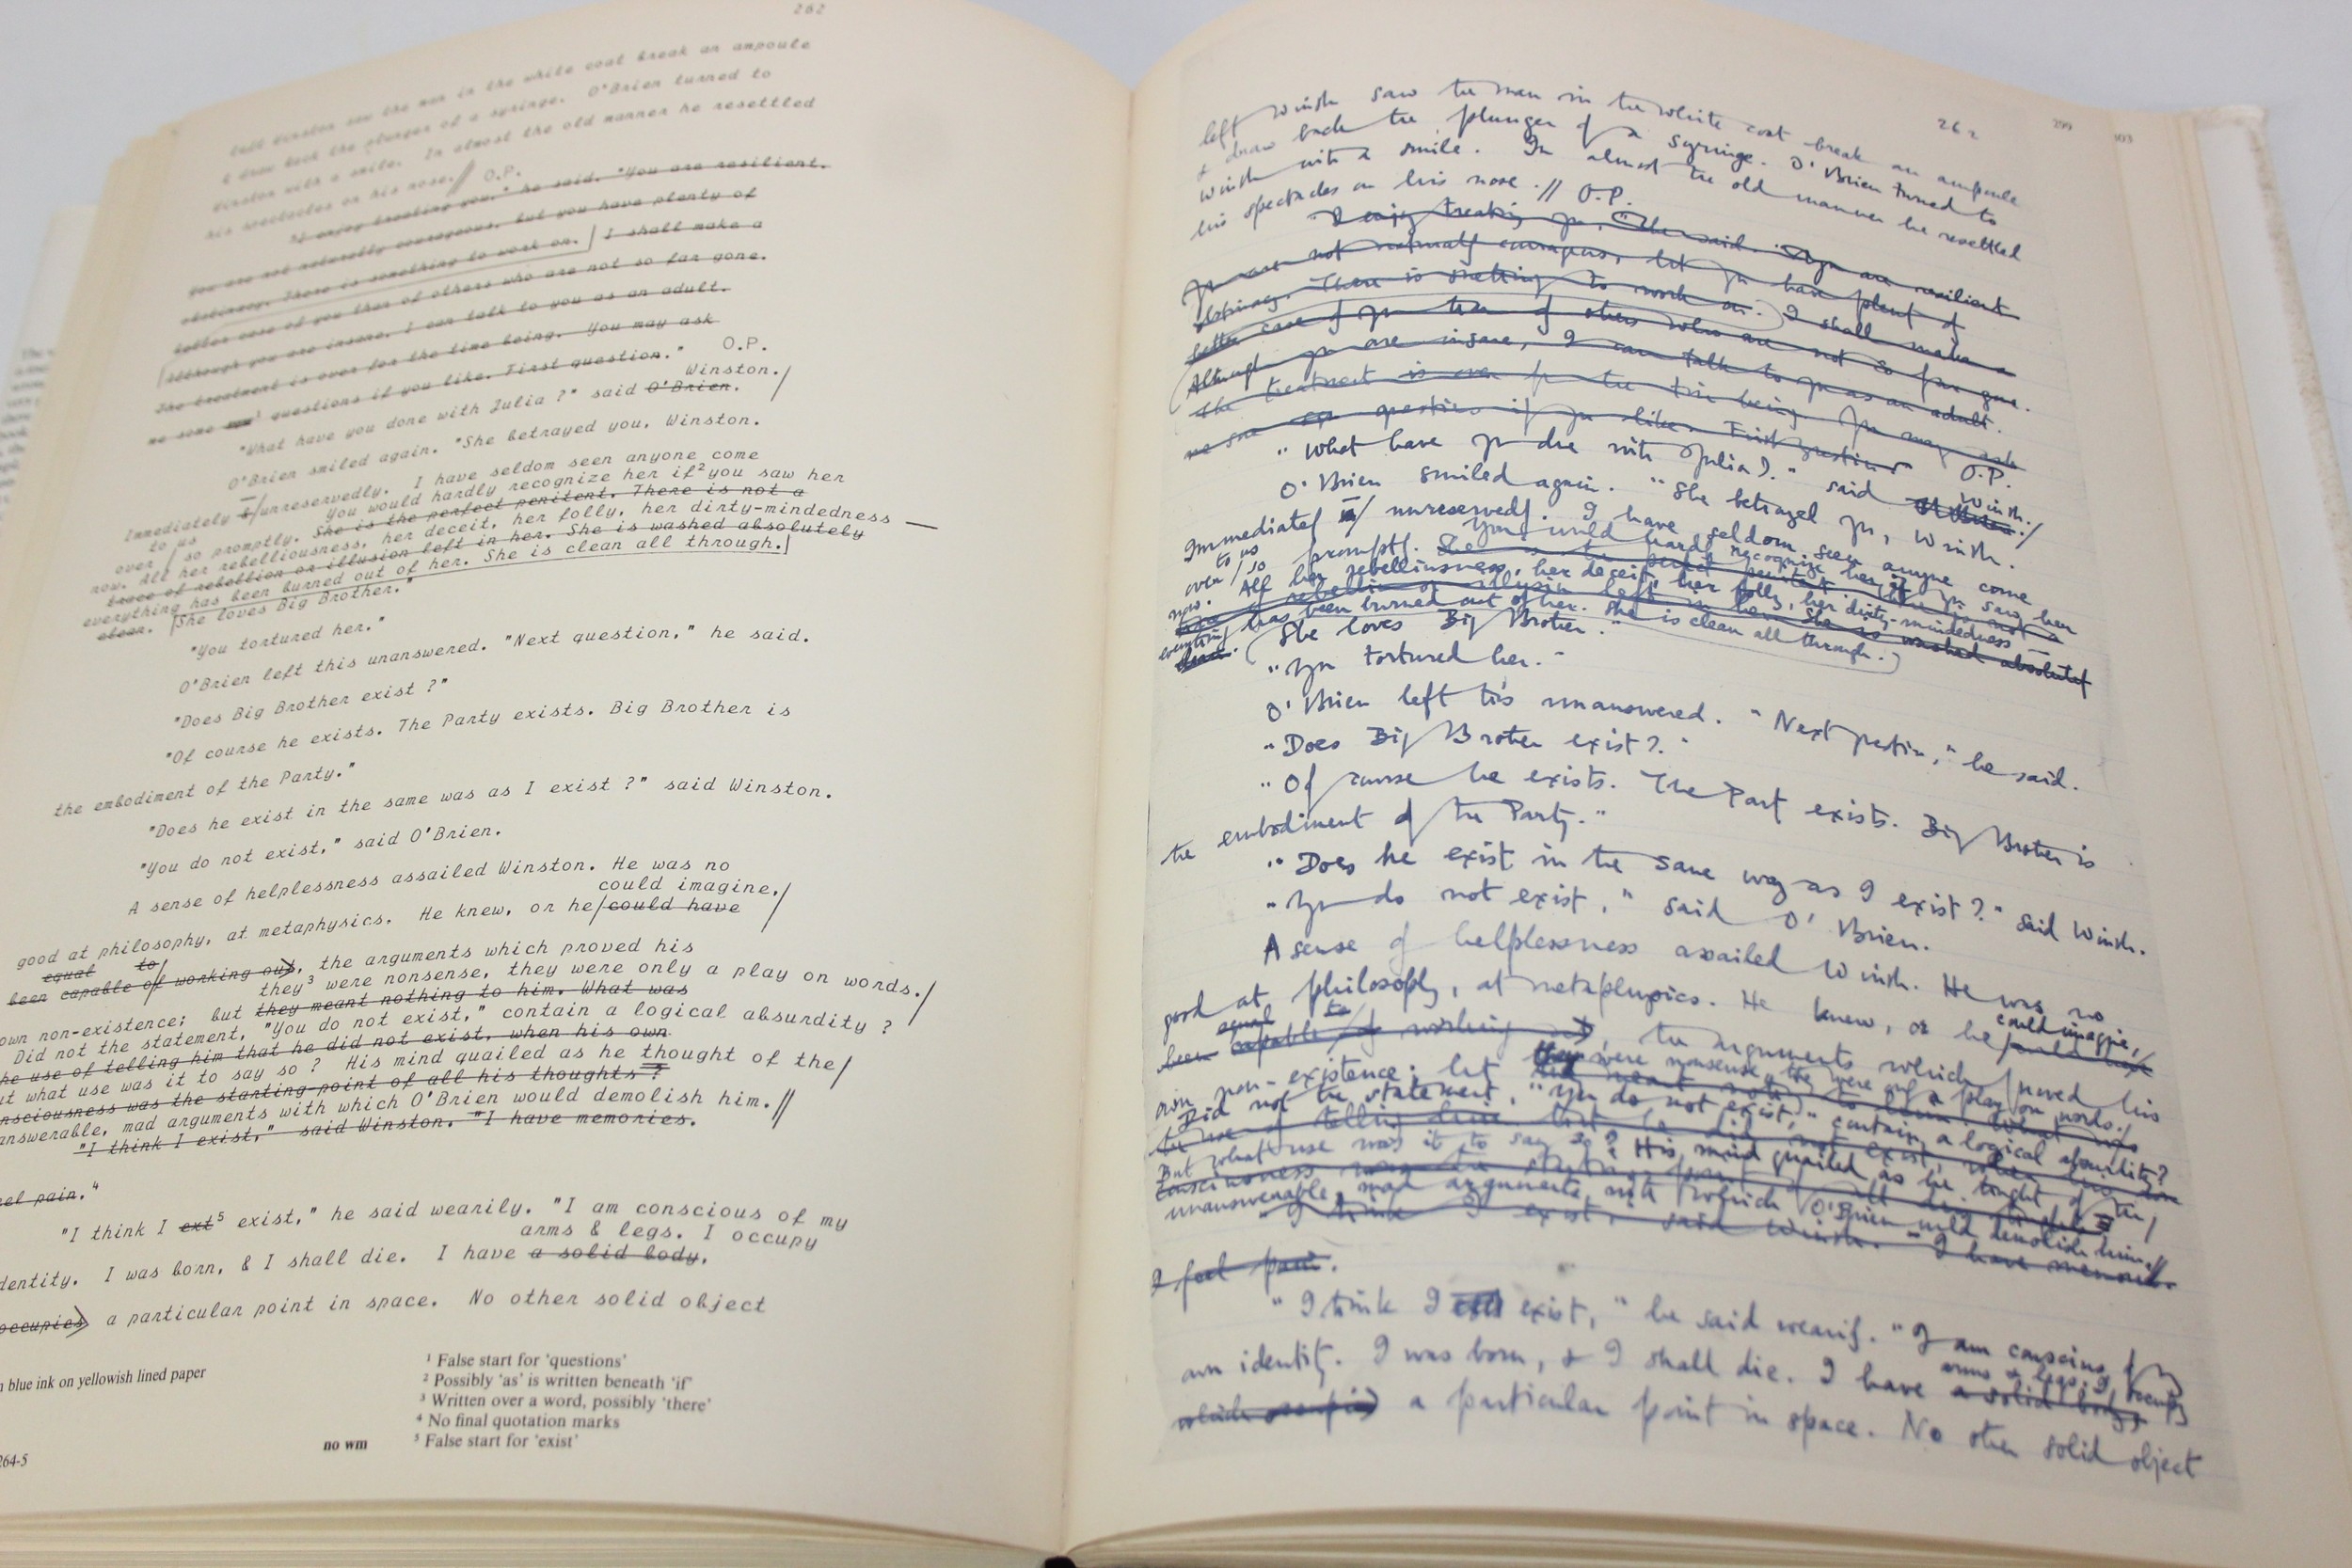 262
left Winston saw the man in the white coat break an ampoule
& draw back the plunger of a syringe. O'Brien turned to
Winston with a smile. In almost the old manner he resettled
his spectacles on his nose.// O.P.
"I enjoy treating you," he said. "You are resilient.
You are not naturally courageous, but you have plenty of
obstinacy. There is something to work on. I shall make a
better case of you than of others who are not so far gone.
Although you are insane, I can talk to you as an adult.
The treatment is over for the time being. You may ask
me some questions if you like. First question." O.P.
Winston./
"What have you done with Julia ?" said O'Brien.
O'Brien smiled again. "She betrayed you, Winston.
Immediately /unreservedly. I have seldom seen anyone come
to us You would hardly recognize her if² you saw her
over / so promptly. She is the perfect penitent. There is not a
now. All her rebelliousness, her deceit, her folly, her dirty-mindedness —
trace of rebellion or illusion left in her. She is washed absolutely
everything has been burned out of her. She is clean all through.
clean. She loves Big Brother."
"You tortured her."
O'Brien left this unanswered. "Next question," he said.
"Does Big Brother exist ?"
"Of course he exists. The Party exists. Big Brother is
the embodiment of the Party."
"Does he exist in the same was as I exist ?" said Winston.
"You do not exist," said O'Brien.
A sense of helplessness assailed Winston. He was no
could imagine,/
good at philosophy, at metaphysics. He knew, or he/could have
equal to/
been capable of working out, the arguments which proved his
they³ were nonsense, they were only a play on words./
own non-existence; but they meant nothing to him. What was
Did not the statement, "You do not exist," contain a logical absurdity ?
he use of telling him that he did not exist, when his own
ut what use was it to say so ? His mind quailed as he thought of the/
nsciousness was the starting-point of all his thoughts ?
answerable, mad arguments with which O'Brien would demolish him.//
"I think I exist," said Winston. "I have memories.
el pain.⁴
"I think I ext⁵ exist," he said wearily. "I am conscious of my
arms & legs. I occupy
dentity. I was born, & I shall die. I have a solid body,
occupies a particular point in space. No other solid object
n blue ink on yellowish lined paper
¹ False start for 'questions'
² Possibly 'as' is written beneath 'if'
³ Written over a word, possibly 'there'
⁴ No final quotation marks
no wm ⁵ False start for 'exist'
264-5
262 299 303
left Winston saw the man in the white coat break an ampoule
& draw back the plunger of a syringe. O'Brien turned to
Winston with a smile. In almost the old manner he resettled
his spectacles on his nose.// O.P.
"I enjoy treating you," he said. "You are resilient
You are not naturally courageous, but you have plenty of
obstinacy. There is something to work on. I shall make a
better case of you than of others who are not so far gone.
Although you are insane, I can talk to you as an adult.
The treatment is over for the time being. You may ask
me some questions if you like. First question" O.P.
Winston./
"What have you done with Julia?" said O'Brien.
O'Brien smiled again. "She betrayed you, Winston.
Immediately / unreservedly. I have seldom seen anyone come
to us You would hardly recognize her if you saw her
over / so promptly. She is the perfect penitent. There is not a
now. All her rebelliousness, her deceit, her folly, her dirty-mindedness —
trace of rebellion or illusion left in her. She is washed absolutely
everything has been burned out of her. She is clean all through.
clean. She loves Big Brother."
"You tortured her."
O'Brien left this unanswered. "Next question," he said.
"Does Big Brother exist?"
"Of course he exists. The Party exists. Big Brother is
the embodiment of the Party."
"Does he exist in the same way as I exist?" said Winston.
"You do not exist," said O'Brien.
A sense of helplessness assailed Winston. He was no
could imagine,/
good at philosophy, at metaphysics. He knew, or he/could have
equal to/
been capable of working out, the arguments which proved his
they were nonsense, they were only a play on words./
own non-existence; but they meant nothing to him. What was
Did not the statement, "You do not exist," contain a logical absurdity?
the use of telling him that he did not exist, when his own
But what use was it to say so? His mind quailed as he thought of the/
consciousness was the starting-point of all his thoughts?
unanswerable, mad arguments with which O'Brien would demolish him.//
"I think I exist," said Winston. "I have memories.
I feel pain.
"I think I ext exist," he said wearily. "I am conscious of my
arms & legs. I occupy
own identity. I was born, & I shall die. I have a solid body,
which occupies a particular point in space. No other solid object